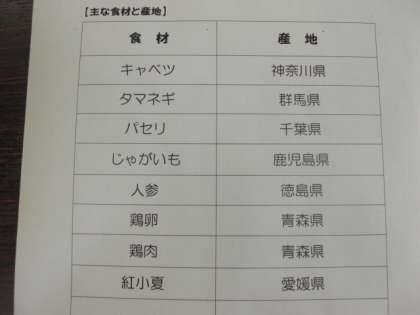 【主な食材と産地】
食材 産地
キャベツ 神奈川県
タマネギ 群馬県
パセリ 千葉県
じゃがいも 鹿児島県
人参 徳島県
鶏卵 青森県
鶏肉 青森県
紅小夏 愛媛県